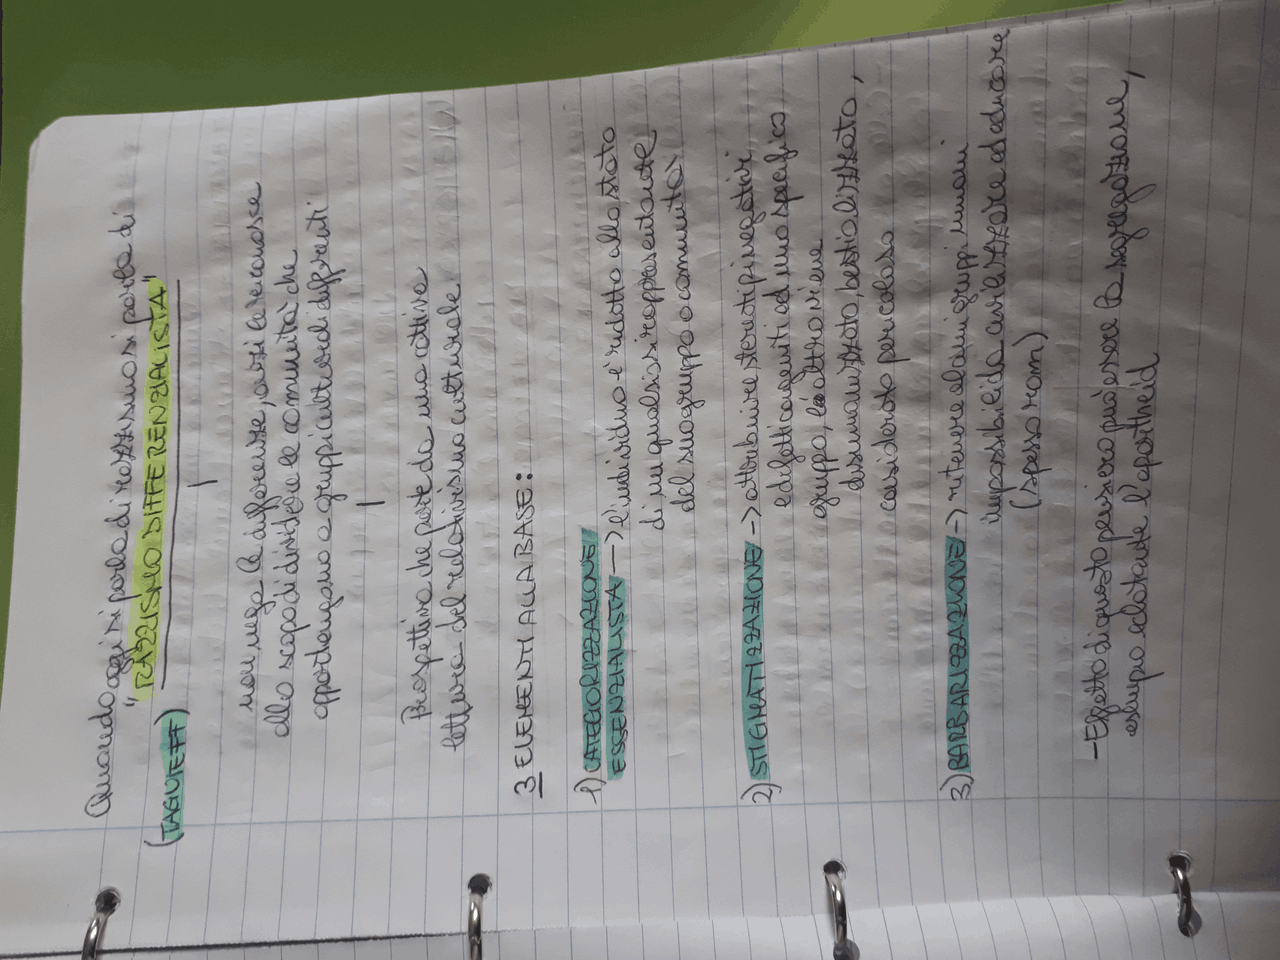 Quando oggi si parla di razzismo si parla di
"RAZZISMO DIFFERENZIALISTA"
(TAGUIEFF)
non nega le differenze, anzi le riconosce
allo scopo di dividere le comunità che
appartengono a gruppi culturali differenti
Prospettiva che parte da una cattiva
lettura del relativismo culturale
3 ELEMENTI ALLA BASE:
1) CATEGORIZZAZIONE
ESSENZIALISTA -> l'individuo è ridotto allo stato
di un qualsiasi rappresentante
del suo gruppo o comunità
2) STIGMATIZZAZIONE -> attribuire stereotipi negativi
e difetti congeniti ad uno specifico
gruppo, l'altro viene
disumanizzato, bestializzato,
considerato pericoloso
3) BARBARIZZAZIONE -> ritenere alcuni gruppi umani
impossibili da civilizzare ed educare
(spesso rom)
- Effetto di questo pensiero può essere la segregazione,
esempio eclatante l'apartheid